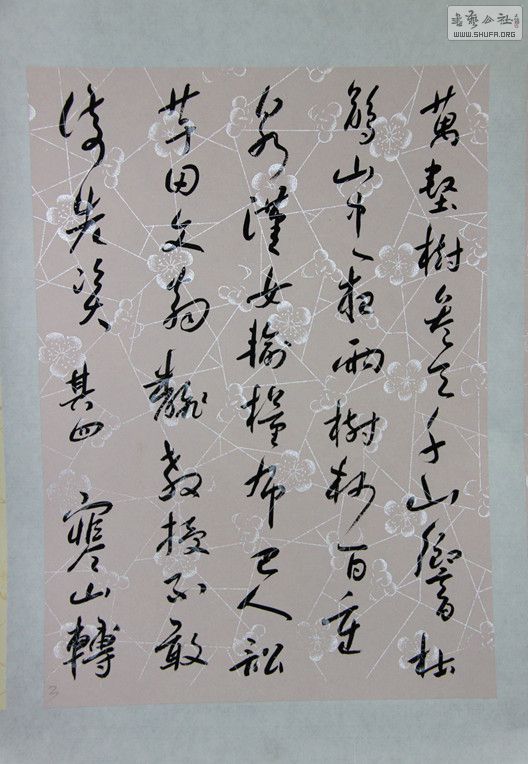 書藝公社
WWW.SHUFA.ORG
萬壑樹參天千山響杜
鵑山中一夜雨樹杪百重
泉漢女輸橦布巴人訟
芋田文翁飜教授不敢
倚先賢 其四 寒山轉
3